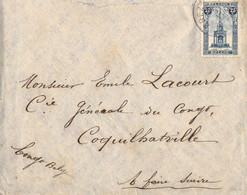 Monsieur Emile Lacourt
Cie Générale du Congo,
Coquilhatville
Congo Belg
A faire suivre